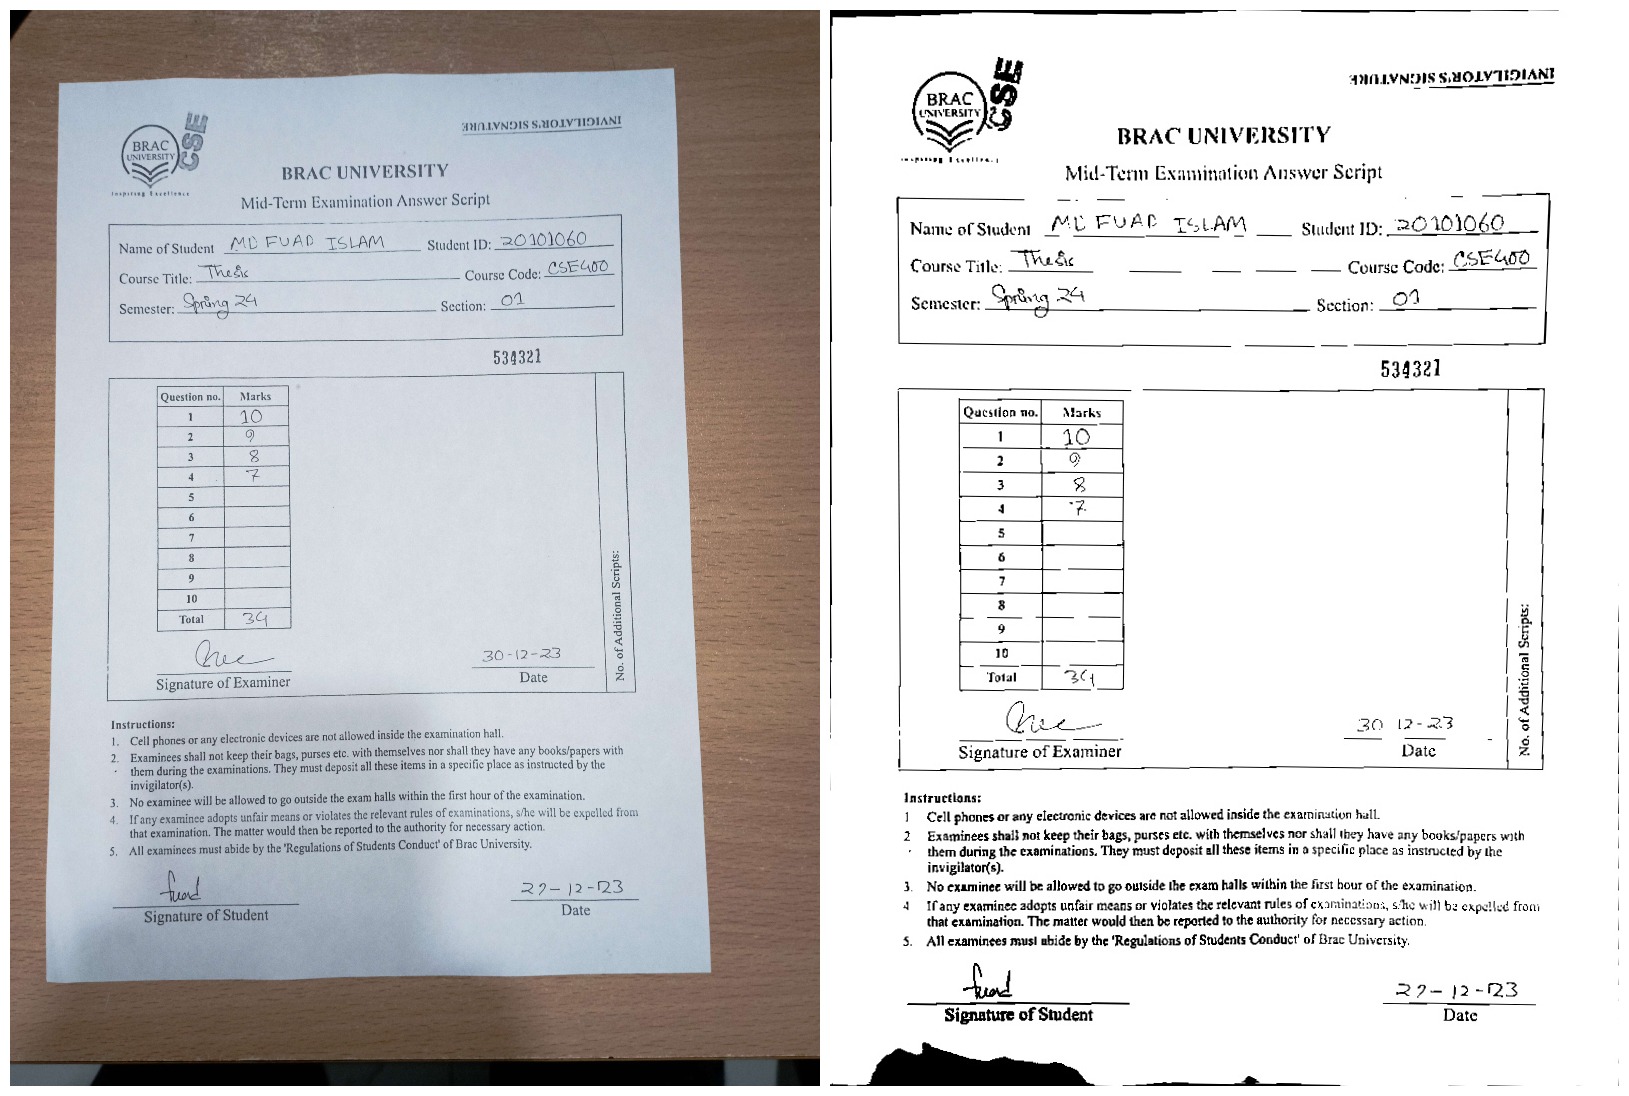 BRAC
UNIVERSITY
Inspiring Excellence
CSE
INVIGILATOR'S SIGNATURE
BRAC UNIVERSITY
Mid-Term Examination Answer Script
Name of Student MD FUAD ISLAM Student ID: 20101060
Course Title: Thesis Course Code: CSE400
Semester: Spring 24 Section: 01
534321
Question no. Marks
1 10
2 9
3 8
4 7
5
6
7
8
9
10
Total 34
No. of Additional Scripts:
30-12-23
Signature of Examiner Date
Instructions:
1. Cell phones or any electronic devices are not allowed inside the examination hall.
2. Examinees shall not keep their bags, purses etc. with themselves nor shall they have any books/papers with
them during the examinations. They must deposit all these items in a specific place as instructed by the
invigilator(s).
3. No examinee will be allowed to go outside the exam halls within the first hour of the examination.
4. If any examinee adopts unfair means or violates the relevant rules of examinations, s/he will be expelled from
that examination. The matter would then be reported to the authority for necessary action.
5. All examinees must abide by the 'Regulations of Students Conduct' of Brac University.
fuad 29-12-23
Signature of Student Date
BRAC
UNIVERSITY
Inspiring Excellence
CSE
INVIGILATOR'S SIGNATURE
BRAC UNIVERSITY
Mid-Term Examination Answer Script
Name of Student MD FUAD ISLAM Student ID: 20101060
Course Title: Thesis Course Code: CSE400
Semester: Spring 24 Section: 01
534321
Question no. Marks
1 10
2 9
3 8
4 7
5
6
7
8
9
10
Total 34
No. of Additional Scripts:
30 12-23
Signature of Examiner Date
Instructions:
1 Cell phones or any electronic devices are not allowed inside the examination hall.
2 Examinees shall not keep their bags, purses etc. with themselves nor shall they have any books/papers with
them during the examinations. They must deposit all these items in a specific place as instructed by the
invigilator(s).
3. No examinee will be allowed to go outside the exam halls within the first hour of the examination.
4 If any examinee adopts unfair means or violates the relevant rules of examinations, s/he will be expelled from
that examination. The matter would then be reported to the authority for necessary action.
5. All examinees must abide by the 'Regulations of Students Conduct' of Brac University.
fuad 29-12-23
Signature of Student Date